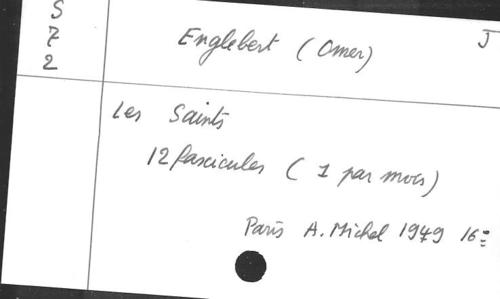 S
7
2
Englebert (Omer) J
Les Saints
12 fascicules (1 par mois)
Paris A. Michel 1949 16=